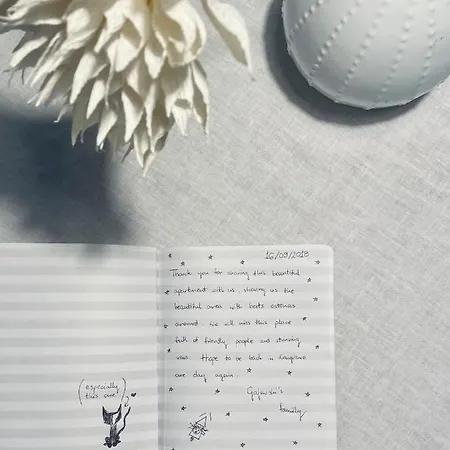 16/09/2018
Thank you for sharing this beautiful
apartment with us, showing us the
beautiful area with
around. We all miss this place
full of friendly people and stunning
views. Hope to be back in
one day again.
family
(especially
this one)